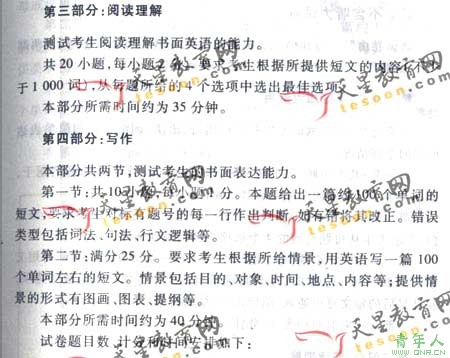 第三部分:阅读理解
测试考生阅读理解书面英语的能力。
共20小题,每小题2分。要求考生根据所提供短文的内容(不少
于1 000词),从每题所给的4个选项中选出最佳选项。
本部分所需时间约为35分钟。
第四部分:写作
本部分共两节,测试考生的书面表达能力。
第一节:共10小题,每小题1分。本题给出一篇约100个单词的
短文,要求考生对标有题号的每一行作出判断,如有错将其改正。错误
类型包括词法、句法、行文逻辑等。
第二节:满分25分。要求考生根据所给情景,用英语写一篇100
个单词左右的短文。情景包括目的、对象、时间、地点、内容等;提供情
景的形式有图画、图表、提纲等。
本部分所需时间约为40分钟。
试卷题目数、计分和时间安排如下:
天星教育网
tesoon.com
天星教育网
tesoon.com
天星教育网
tesoon.com
天星教育网
tesoon.com
天星教育网
tesoon.com
青年人
WWW.QNR.CN